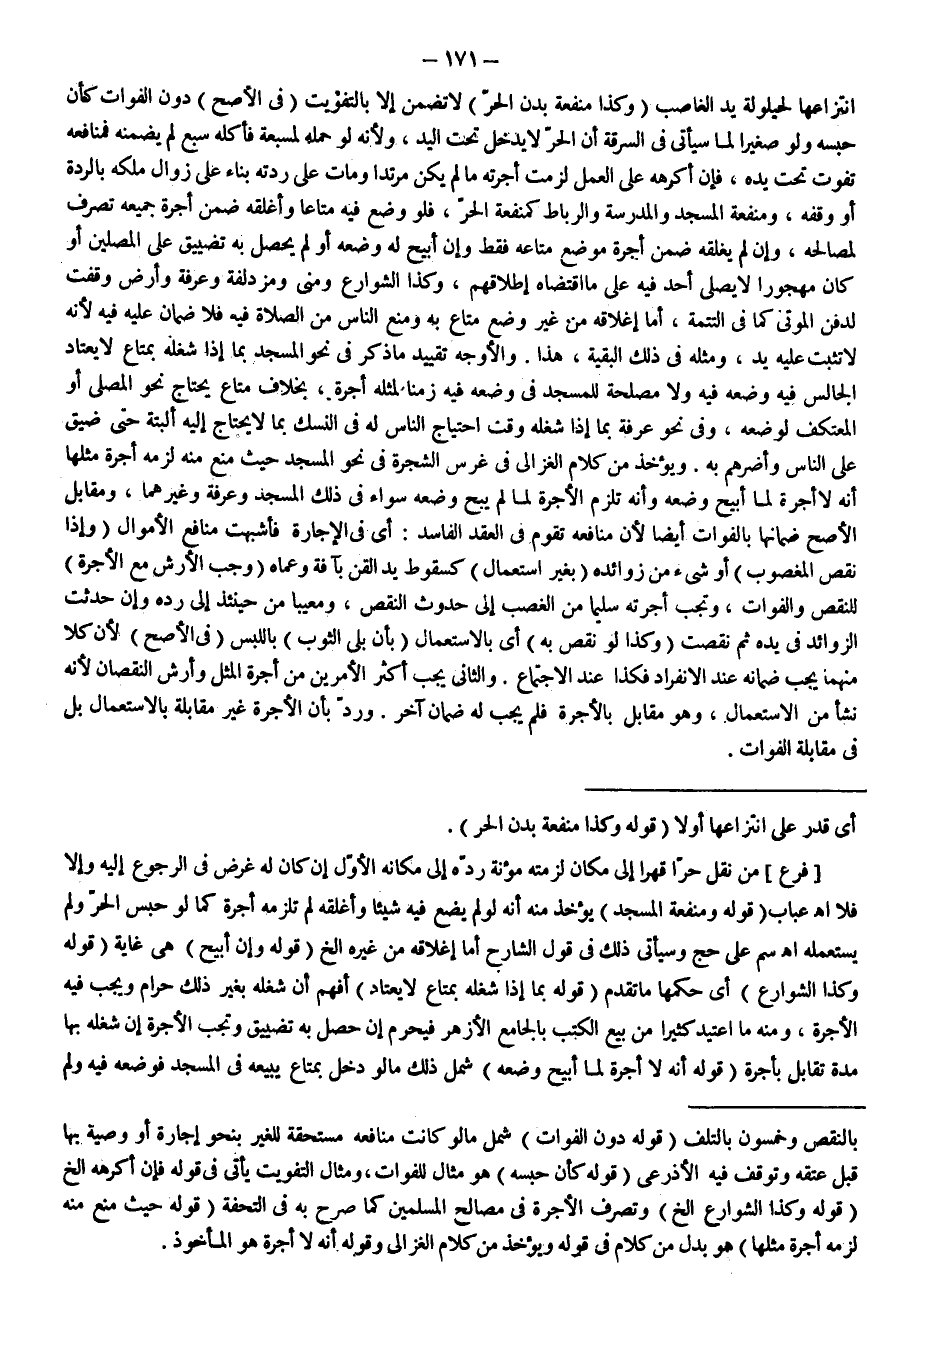 – ١٧١ –
انتزاعها لحيلولة يد الغاصب ( وكذا منفعة بدن الحرّ ) لاتضمن إلا بالتفويت ( فى الأصح ) دون الفوات كأن
حبسه ولو صغيرا لمـا سيأتى فى السرقة أن الحرّ لايدخل تحت اليد ، ولأنه لو حمله لمسبعة فأكله سبع لم يضمنه فمنافعه
تفوت تحت يده ، فإن أكرهه على العمل لزمت أجرته ما لم يكن مرتدا ومات على ردته بناء على زوال ملكه بالردة
أو وقفه ، ومنفعة المسجد والمدرسة والرباط كمنفعة الحرّ ، فلو وضع فيه متاعا وأغلقه ضمن أجرة جميعه تصرف
لمصالحه ، وإن لم يغلقه ضمن أجرة موضع متاعه فقط وإن أبيح له وضعه أو لم يحصل به تضييق على المصلين أو
كان مهجورا لايصلى أحد فيه على مااقتضاه إطلاقهم ، وكذا الشوارع ومنى ومزدلفة وعرفة وأرض وقفت
لدفن الموتى كما فى التتمة ، أما إغلاقه من غير وضع متاع به ومنع الناس من الصلاة فيه فلا ضمان عليه فيه لأنه
لاتثبت عليه يد ، ومثله فى ذلك البقية ، هذا . والأوجه تقييد ماذكر فى نحو المسجد بما إذا شغله بمتاع لايعتاد
الجالس فيه وضعه فيه ولا مصلحة للمسجد فى وضعه فيه زمنا لمثله أجرة ، بخلاف متاع يحتاج نحو المصلى أو
المعتكف لوضعه ، وفى نحو عرفة بما إذا شغله وقت احتياج الناس له فى النسك بما لايحتاج إليه ألبتة حتى ضيق
على الناس وأضرهم به . ويؤخذ من كلام الغزالى فى غرس الشجرة فى نحو المسجد حيث منع منه لزمه أجرة مثلها
أنه لاأجرة لمـا أبيح وضعه وأنه تلزم الأجرة لمـا لم يبح وضعه سواء فى ذلك المسجد وعرفة وغيرهما ، ومقابل
الأصح ضمانها بالفوات أيضا لأن منافعه تقوم فى العقد الفاسد : أى فى الإجارة فأشبهت منافع الأموال ( وإذا
نقص المغصوب ) أو شىء من زوائده ( بغير استعمال ) كسقوط يد القن بآفة وعماه ( وجب الأرش مع الأجرة )
للنقص والفوات ، وتجب أجرته سليما من الغصب إلى حدوث النقص ، ومعيبا من حينئذ إلى رده وإن حدثت
الزوائد فى يده ثم نقصت ( وكذا لو نقص به ) أى بالاستعمال ( بأن بلى الثوب ) باللبس ( فى الأصح ) لأن كلا
منهما يجب ضمانه عند الانفراد فكذا عند الاجتماع . والثانى يجب أكثر الأمرين من أجرة المثل وأرش النقصان لأنه
نشأ من الاستعمال ، وهو مقابل بالأجرة فلم يجب له ضمان آخر . وردّ بأن الأجرة غير مقابلة بالاستعمال بل
فى مقابلة الفوات .
أى قدر على انتزاعها أولا ( قوله وكذا منفعة بدن الحر ) .
[ فرع ] من نقل حرّا قهرا إلى مكان لزمته مؤنة ردّه إلى مكانه الأوّل إن كان له غرض فى الرجوع إليه وإلا
فلا اهـ عباب( قوله ومنفعة المسجد ) يؤخذ منه أنه لولم يضع فيه شيئا وأغلقه لم تلزمه أجرة كما لو حبس الحرّ ولم
يستعمله اهـ سم على حج وسيأتى ذلك فى قول الشارح أما إغلاقه من غيره الخ ( قوله وإن أبيح ) هى غاية ( قوله
وكذا الشوارع ) أى حكمها ماتقدم ( قوله بما إذا شغله بمتاع لايعتاد ) أفهم أن شغله بغير ذلك حرام ويجب فيه
الأجرة ، ومنه ما اعتيد كثيرا من بيع الكتب بالجامع الأزهر فيحرم إن حصل به تضييق وتجب الأجرة إن شغله بها
مدة تقابل بأجرة ( قوله أنه لا أجرة لمـا أبيح وضعه ) شمل ذلك مالو دخل بمتاع يبيعه فى المسجد فوضعه فيه ولم
بالنقص وخمسون بالتلف ( قوله دون الفوات ) شمل مالو كانت منافعه مستحقة للغير بنحو إجارة أو وصية بها
قبل عتقه وتوقف فيه الأذرعى ( قوله كأن حبسه ) هو مثال للفوات ، ومثال التفويت يأتى فى قوله فإن أكرهه الخ
( قوله وكذا الشوارع الخ ) وتصرف الأجرة فى مصالح المسلمين كما صرح به فى التحفة ( قوله حيث منع منه
لزمه أجرة مثلها ) هو بدل من كلام فى قوله ويؤخذ من كلام الغزالى وقوله أنه لا أجرة هو المـأخوذ .